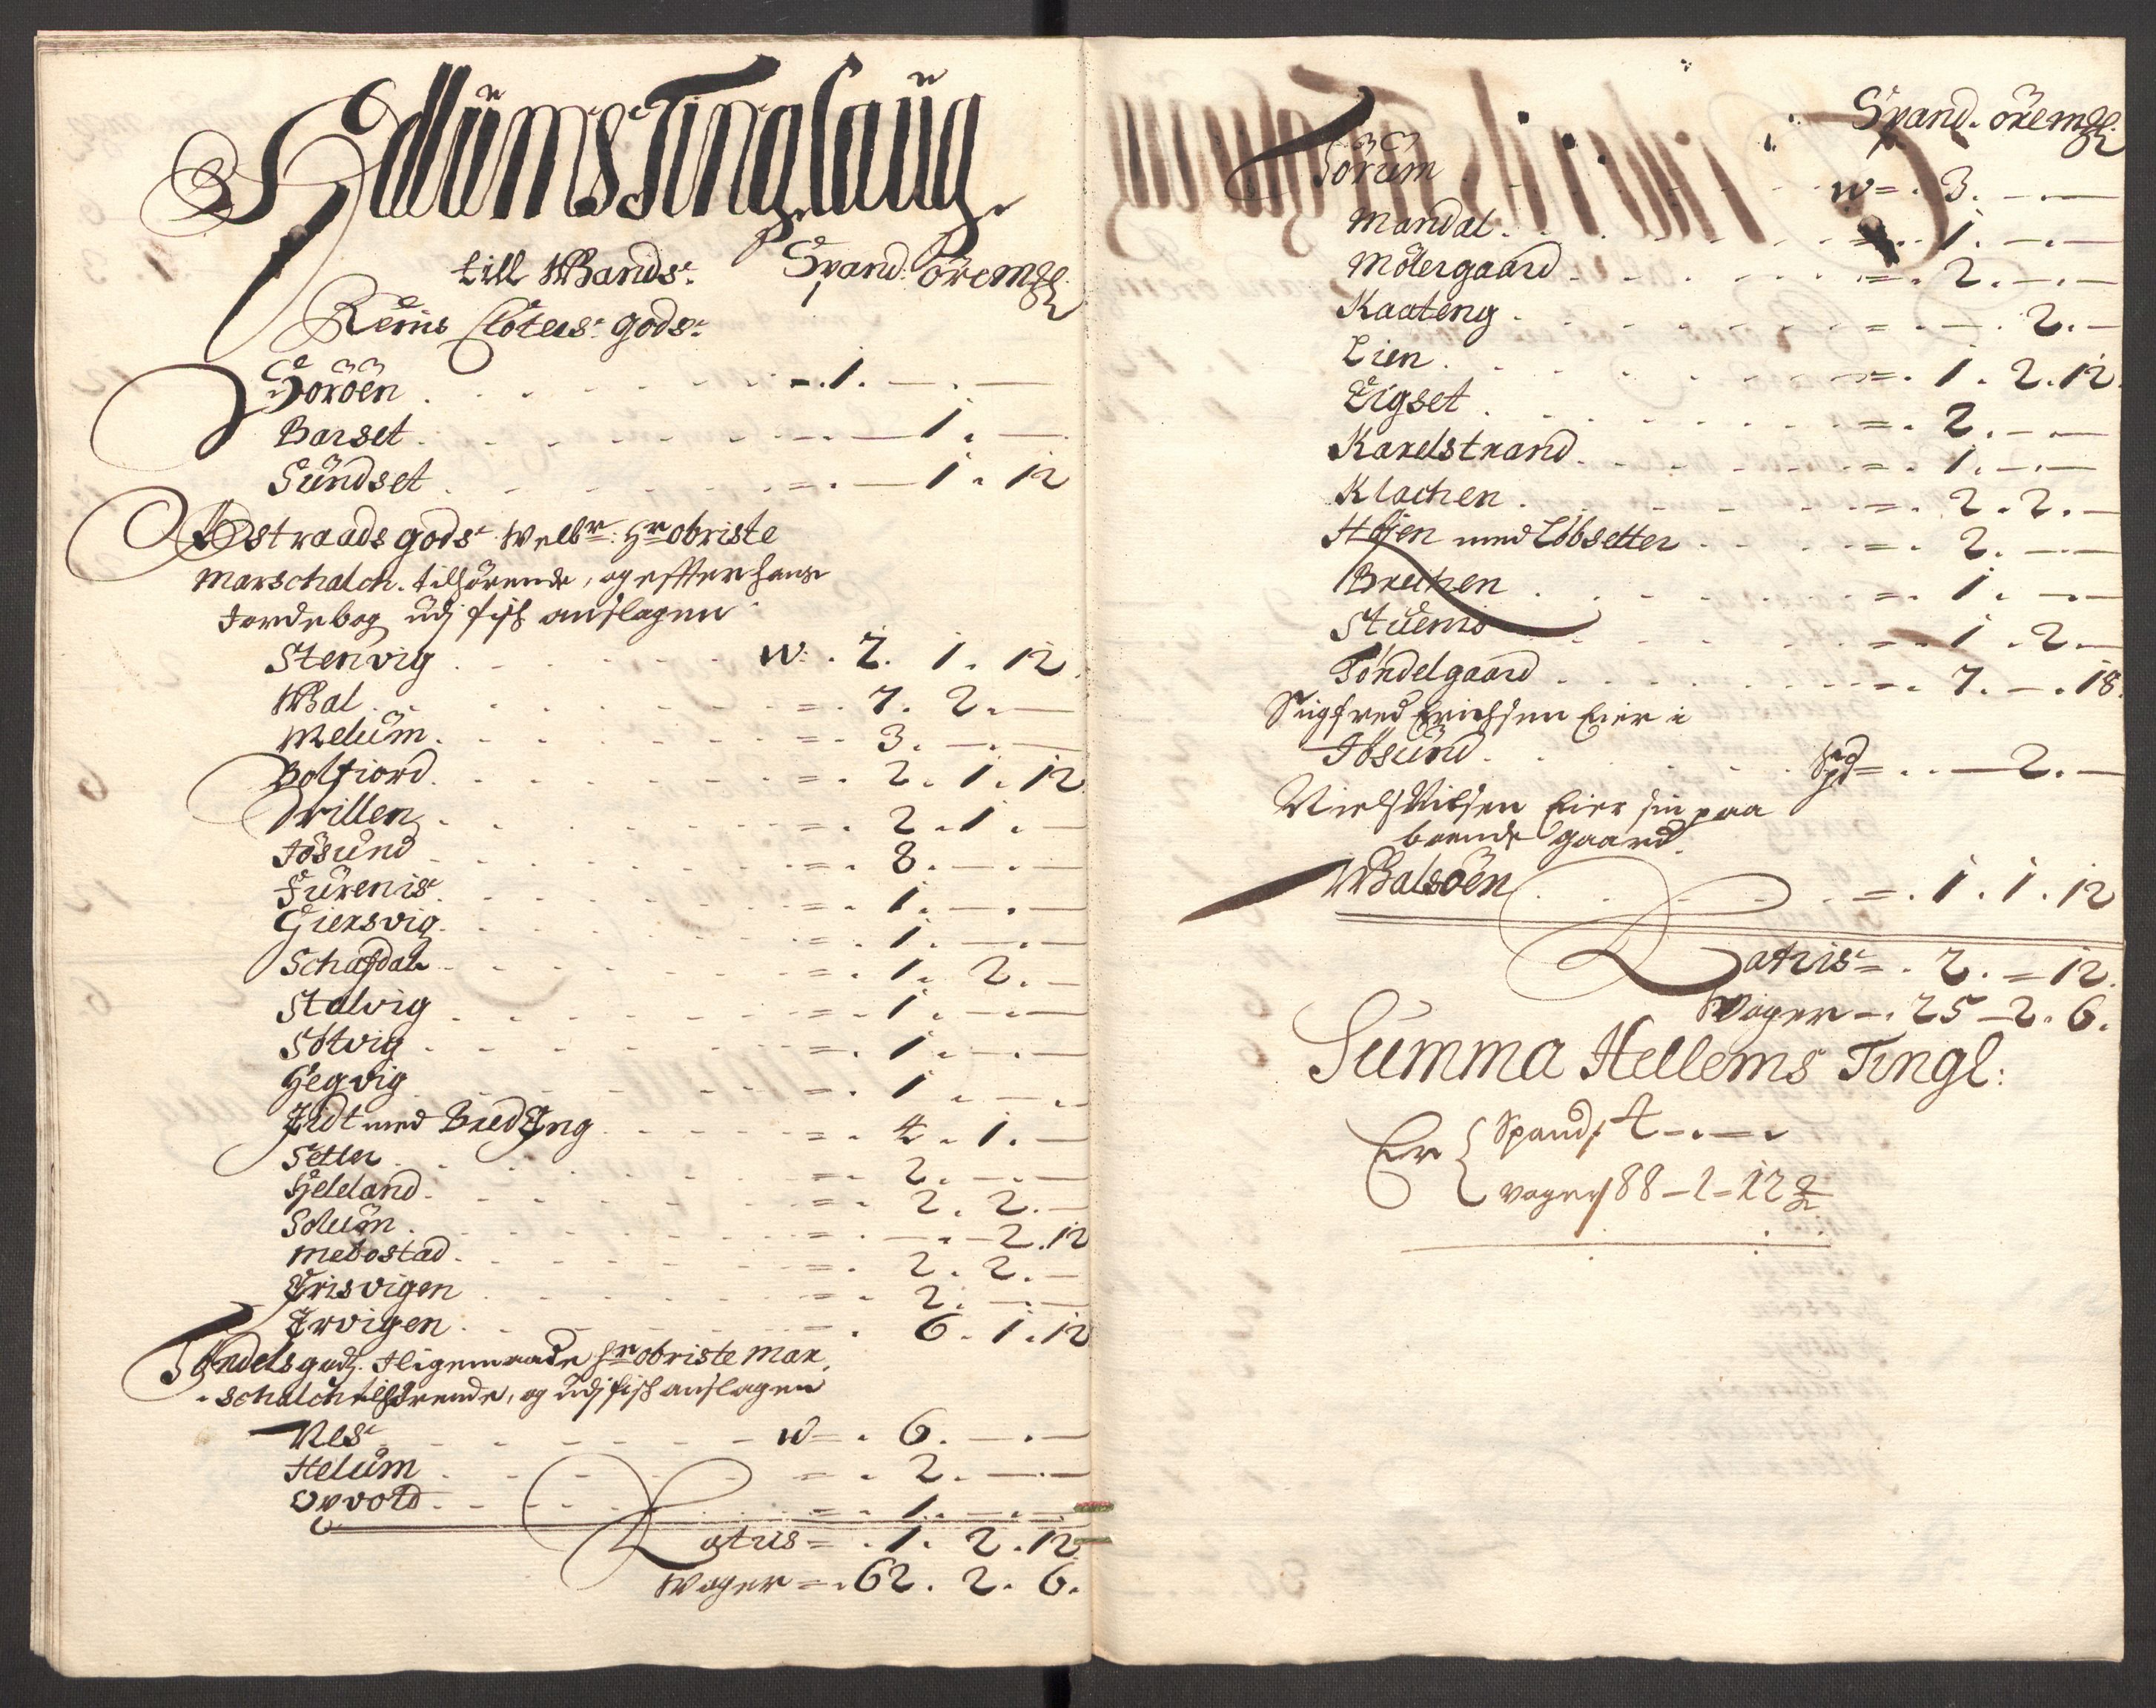 Hellüms Tinglaüg
till Wands. Spand: öre m℔
Reins Closters gods.
Soröen . . . - . 1 . — . —
Barset . . . — 1 . —
Sündset . . . = . — 1 . 12
Østraads gods. Welbr: Hr obriste
Marschalch. tilhörende, og effter hans
Jordebog üdj fisk anslagen
Stenvig . . . W. . 2. 1. 12
Wal . . . = . 7. 2. —
Melüm . . . = . 3. — . —
Botfiord . . . = . 2. 1. 12
Drillen . . . = . 2 . 1 . —
Jösund . . . = . 8. — . —
Fürenis . . . = . 1. — . —
Giersvig . . . = . 1. — . —
Schaffdal . . . = . 1. 2. —
Stalvig . . . = . 1. — . —
Sötvig . . . = . 1. — . —
Hegvig . . . = . 1. — . —
Tidt med BredEng . . . = . 4. 1. —
Setter . . . = . 2. — . —
Heleland . . . = . 2. 2. —
Solüm . . . = . — . 2. 12
Mebostad . . . = . 2. 2. —
Frisvigen . . . = . 2. — . —
Ervigen . . . = . 6. 1. 12
Töndels gods. Iligemaade Hr obriste Mar,
schalch tilhörende, og üdj fisk anslagen
Nes . . . W = . 6. — . —
Helüm . . . = . 2. — . —
Opvold . . . = . 1. — . —
Latus = . 1. 2. 12
Woger = . 62. 2. 6.
Spand. öre m℔
Sörüm . . . W = . 3. — . —
Mandal . . . = . 1. — . —
Mölergaard . . . = . 2. — . —
Kaateng . . . = . — . 2. —
Lien . . . = . 1. 2. 12
Eigset . . . = . 2. — . —
Karelstrand . . . = . 1. — . —
Klachen . . . = . 2. 2. —
Höjen med Lobsetter . . . = . 2. — . —
Brechen . . . = . 1. — . —
Stüenis . . . = . 1. 2. —
Töndelgaard . . . = . 7. — . 18
Sigfred Erichsen Eier i
Ibsünd . . . Spd = . . — 2. —
Niels Nilsen Eier sin paa
boende gaard
Walsöen . . . = . 1. 1. 12
Latus = . 2. = 12.
Woger — . 25 — 2. 6.
Summa Hellems Tingl:
Er { Spand, 4 — . — .
voger 88 — 1 — 12 ℔